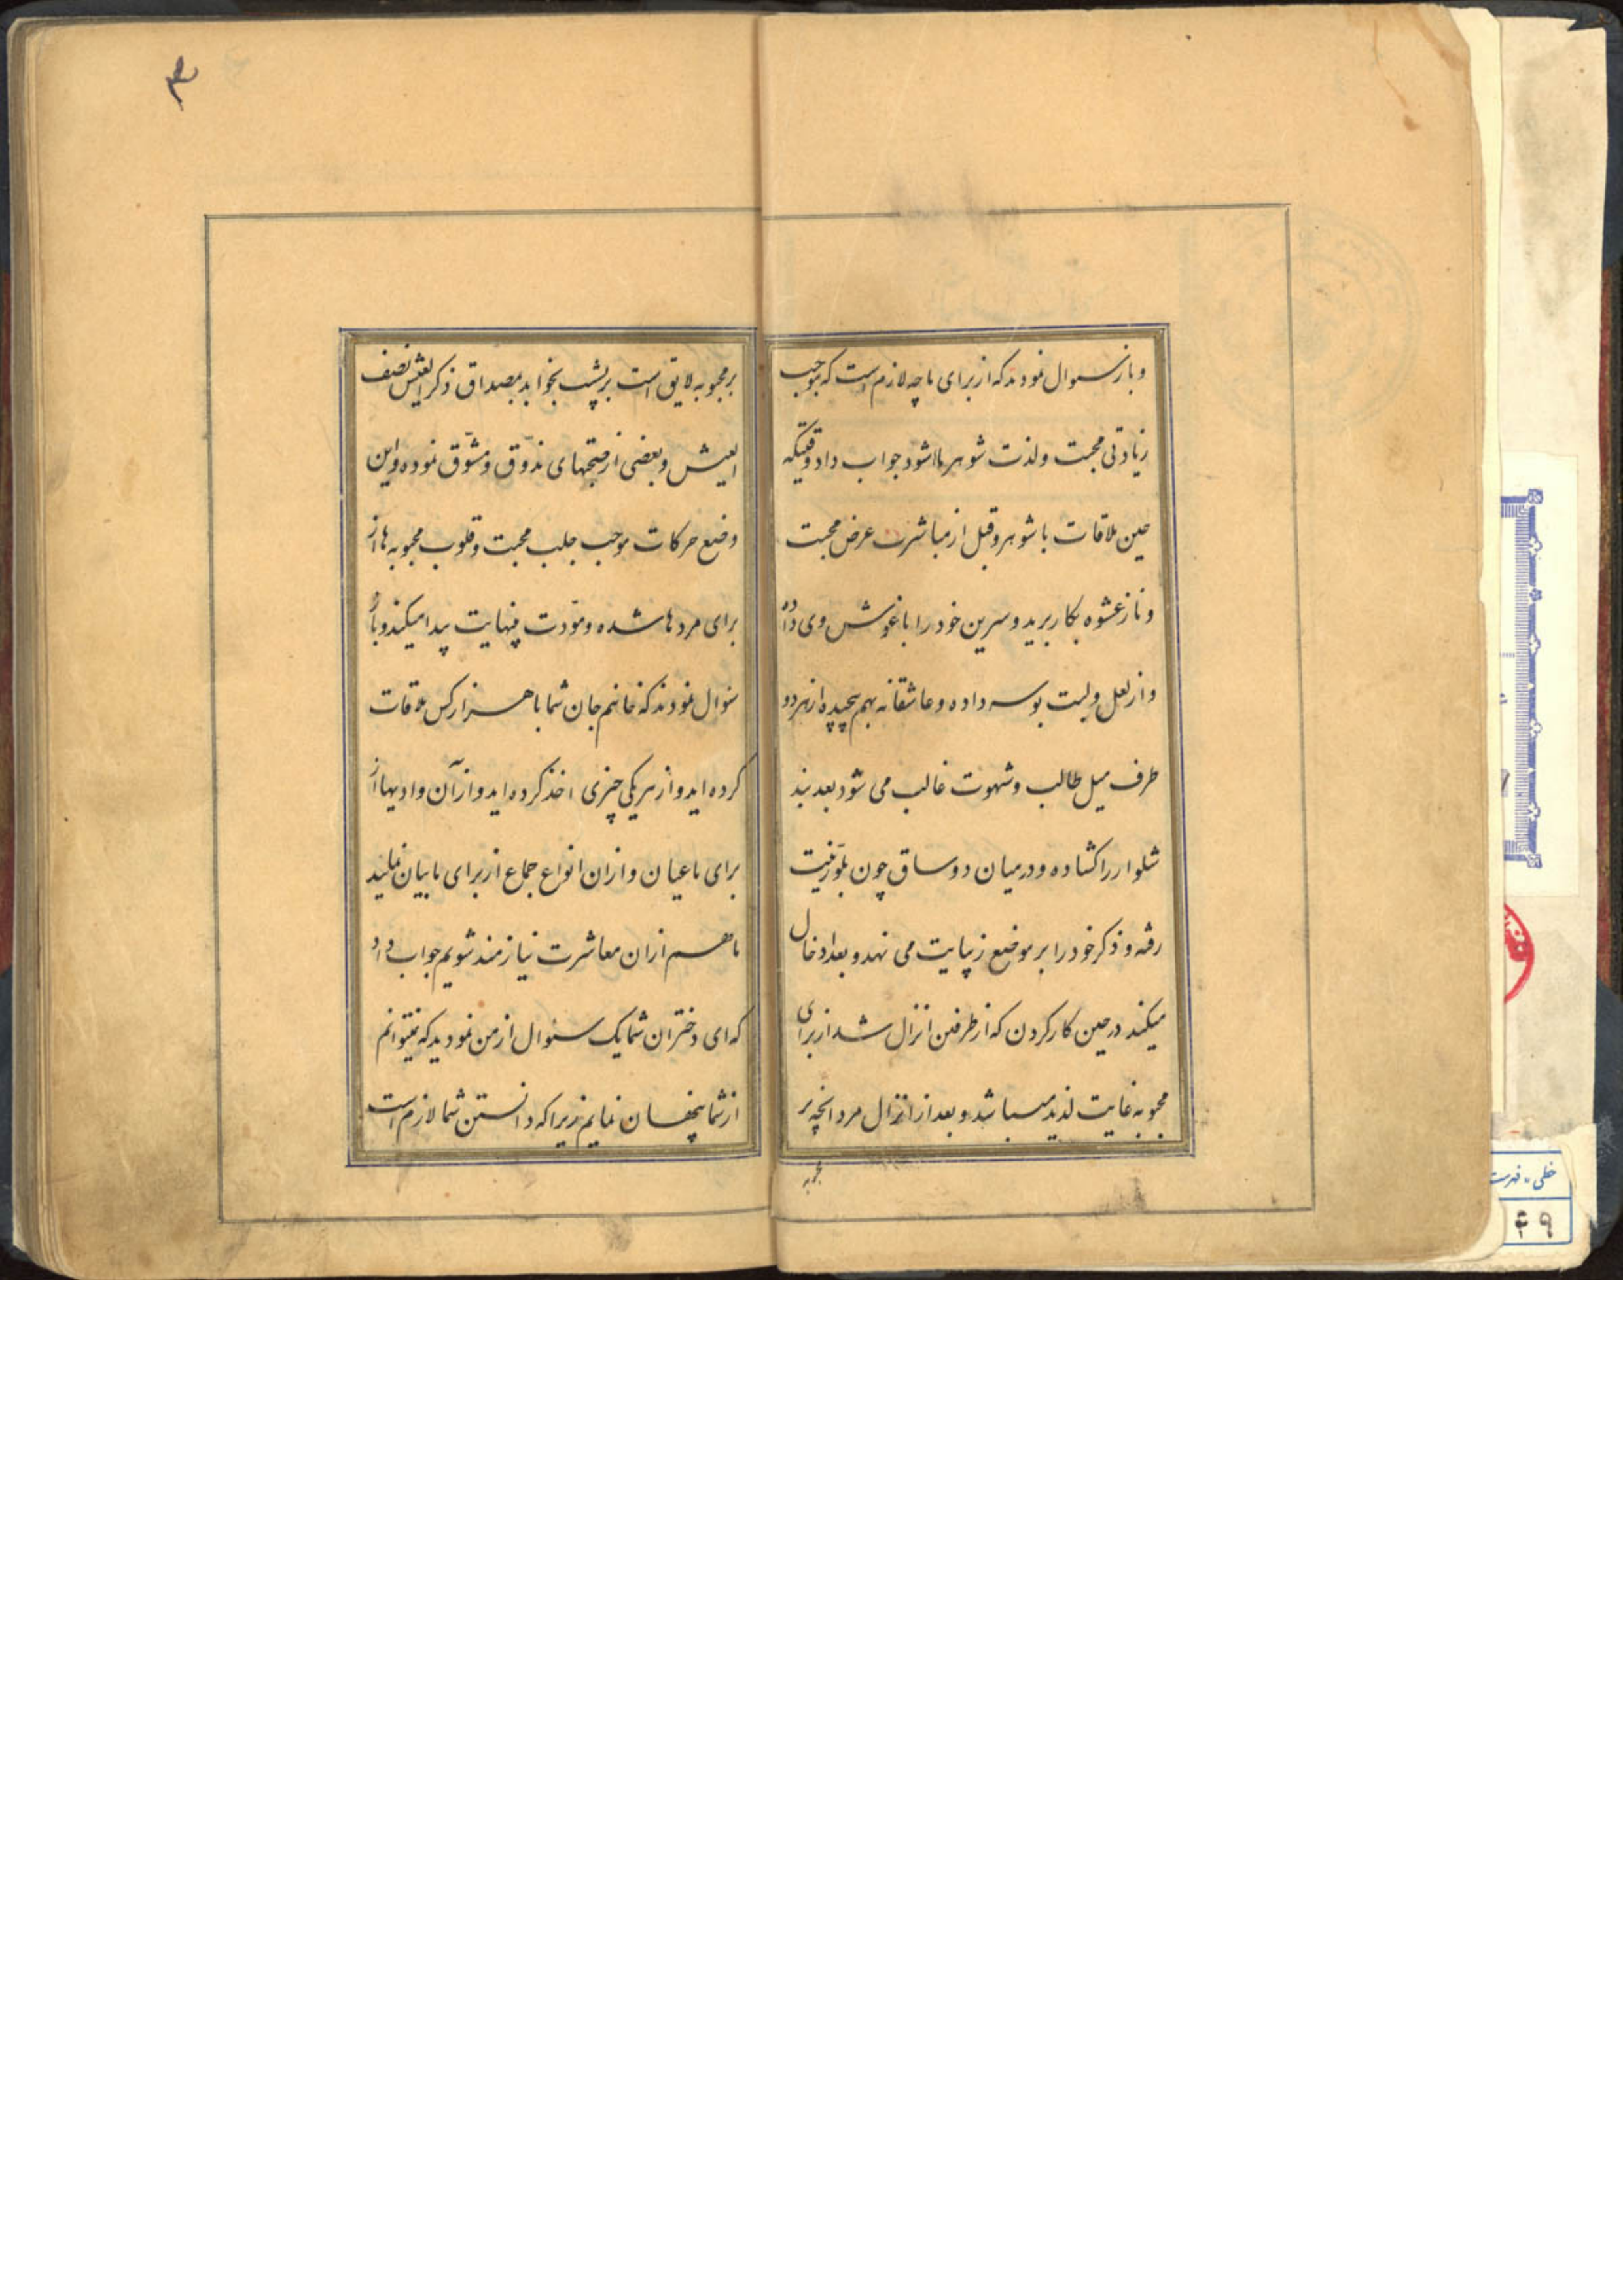 و باز سئوال نمودند که از برای ما چه لازم است که موجب
زیادتی محبت و لذت شوهر ما شود جواب داد وقتیکه
حین ملاقات با شوهر و قبل از مباشرت عرض محبت
و ناز عشوه بکار برید و سرین خود را باغوش وی داده
و از لعل و لبت بوسه داده و عاشقانه بهم پیچیده از هر دو
طرف میل طالب و شهوت غالب می شود بعد بند
شلوار را کشاده و در میان دو ساق چون بلورینت
رفته و ذکر خود را بر موضع زیبایت می نهد و بعد ادخال
میکند در حین کار کردن که از طرفین انزال شد از برای
محبوبه غایت لذید میباشد و بعد از انزال مرد انچه بر
محبوبه
۳
بر محبوبه لایق است بر پشت بخوابد بمصداق ذکر العیش نصف
العیش و بعضی از صحبتهای مذوّق و مشوّق نموده و این
وضع حرکات موجب جلب محبت و قلوب محبوبه ها از
برای مرد ها شده و مودّت بینهایت پیدا میکند و باز
سئوال نمودند که خانم جان شما با هزار کس ملاقات
کرده اید و از هر یکی چیزی اخذ کرده اید و از آن وادیها از
برای ما عیان و ازان انواع جماع از برای ما بیان نمائید
ما هم ازان معاشرت نیازمند شویم جواب داد
که ای دختران شما یک سئوال از من نمودید که نمیتوانم
از شما پنهان نمایم زیرا که دانستن شما لازم است
خطی - فهرست